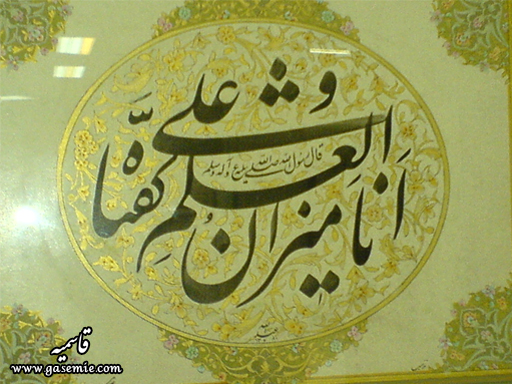 قال رسول الله صلی الله علیه و آله و سلم
انا میزان العلم و علی کفتاه
قاسمیه
www.gasemie.com